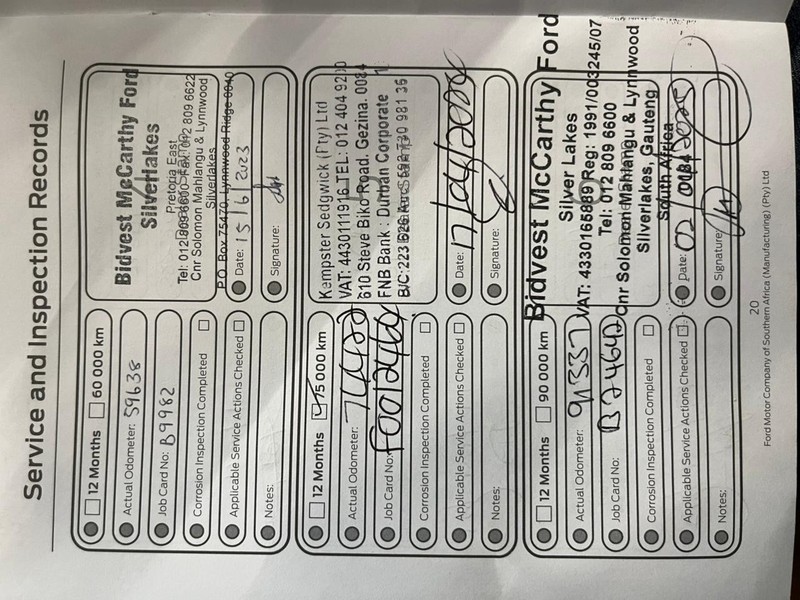 Service and Inspection Records
12 Months 60 000 km
Actual Odometer: 59638
Job Card No: B9982
Corrosion Inspection Completed
Applicable Service Actions Checked
Notes:
Bidvest McCarthy Ford
Silverlakes
Pretoria East
Tel: 012 809 6600 Fax: 012 809 6622
Cnr Solomon Mahlangu & Lynnwood
Silverlakes
P.O. Box 75470, Lynnwood Ridge 0040
Date: 15/6/2023
Signature:
12 Months 75 000 km
Actual Odometer:
Job Card No:
Corrosion Inspection Completed
Applicable Service Actions Checked
Notes:
Kempster Sedgwick (Pty) Ltd
VAT: 4430111916 TEL: 012 404 9200
610 Steve Biko Road. Gezina. 0084
FNB Bank : Durban Corporate
B/C:223 626
Date:
Signature:
12 Months 90 000 km
Actual Odometer: 91337
Job Card No:
Corrosion Inspection Completed
Applicable Service Actions Checked
Notes:
Bidvest McCarthy Ford
Silver Lakes
VAT: 4330165889 Reg: 1991/003245/07
Tel: 012 809 6600
Cnr Solomon Mahlangu & Lynnwood
Silverlakes, Gauteng
South Africa
0084
Date:
Signature:
20
Ford Motor Company of Southern Africa (Manufacturing) (Pty) Ltd